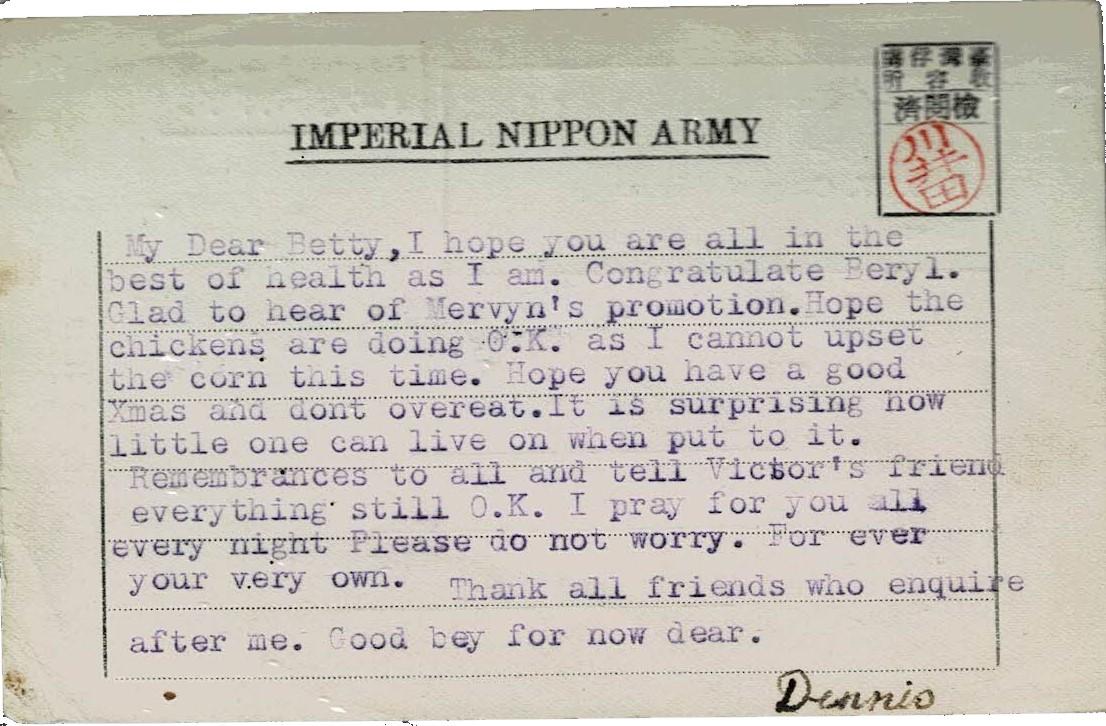 臺灣俘虜
收容所
檢閲濟
IMPERIAL NIPPON ARMY
My Dear Betty,I hope you are all in the
best of health as I am. Congratulate Beryl.
Glad to hear of Mervyn's promotion.Hope the
chickens are doing O.K. as I cannot upset
the corn this time. Hope you have a good
Xmas and dont overeat.It is surprising how
little one can live on when put to it.
Remembrances to all and tell Victor's friend
everything still O.K. I pray for you all
every night Please do not worry. For ever
your very own. Thank all friends who enquire
after me. Good bey for now dear.
Dennis